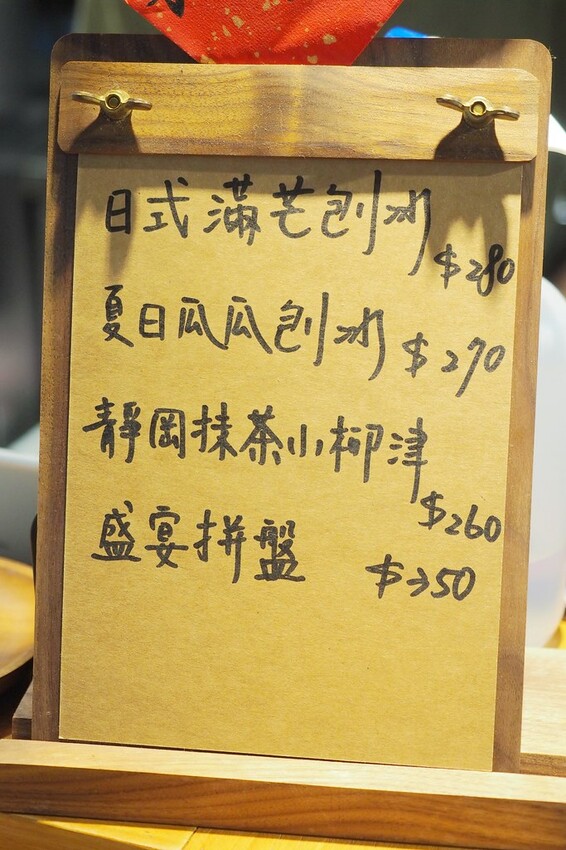 日式滿芒刨冰
$280
夏日瓜瓜刨冰 $270
靜岡抹茶小柳津
$260
盛宴拼盤 $350